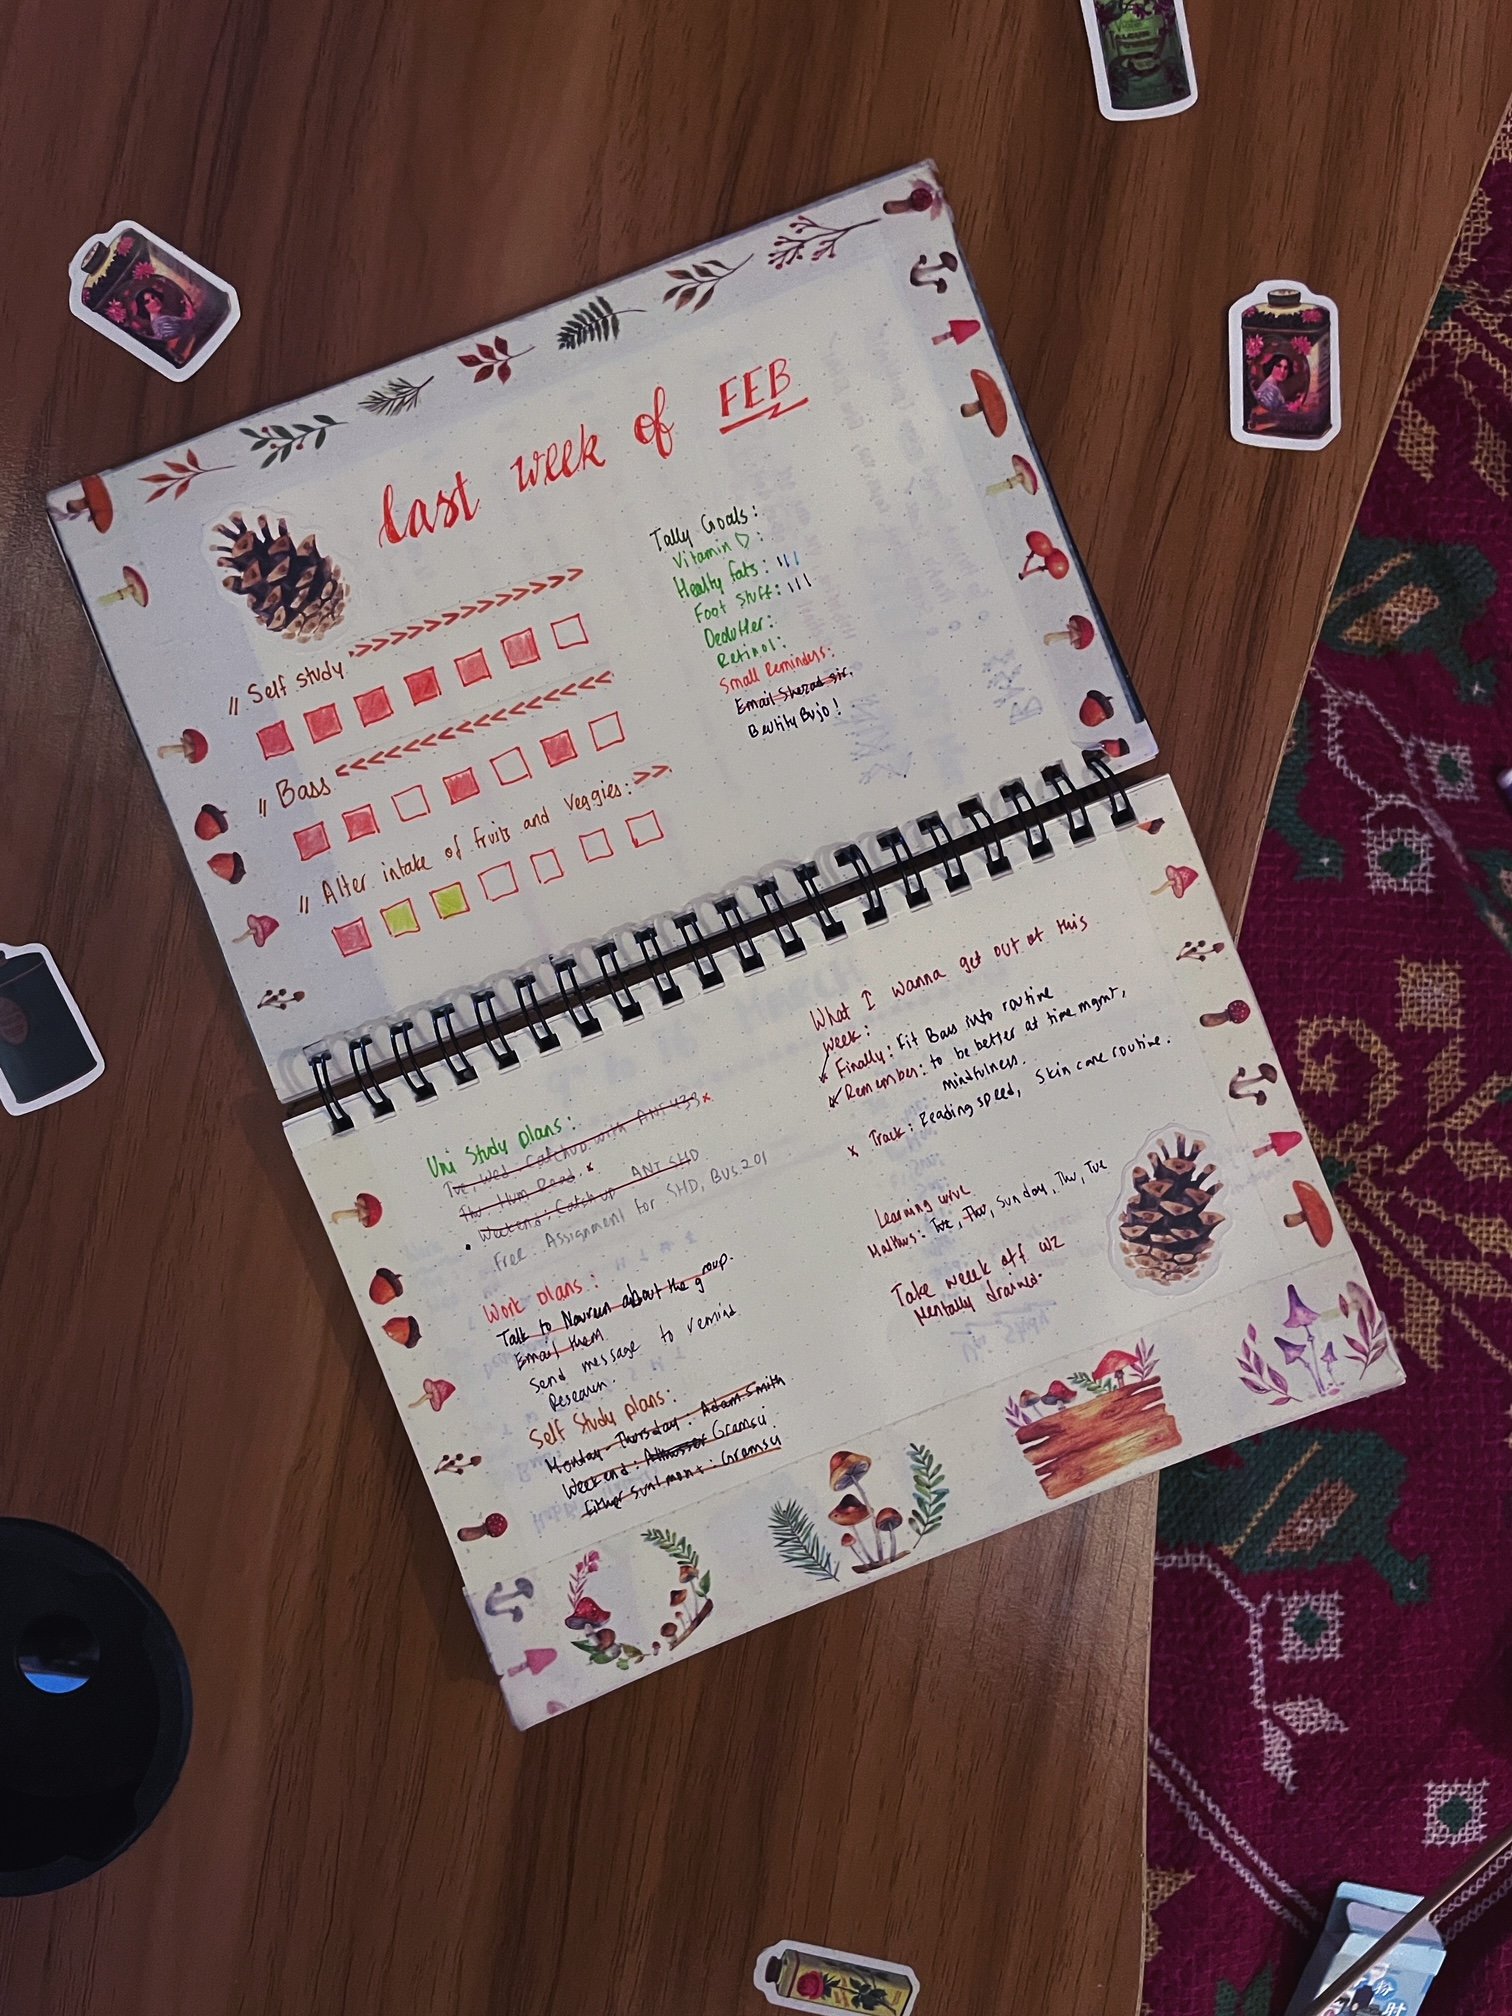 last week of FEB
" Self study >>>>>>>>>>>>
" Bass <<<<<<<<<<<<<
" Alter intake of fruits and veggies: >>
Tally Goals:
Vitamin D:
Healty fats: III
Foot stuff: III
Retinol:
Small Reminders:
Email Sherad sir.
Beutify Bujo!
Uni Study plans:
Tue, Wed. Catchup with ANT 433 x
Thu. Hum Read. x
• Weekend: Catch up ANT SHD
Free. Assignment for SHD, BUS.201
Work plans:
Talk to Nawreen about the group.
Email them
Send message to remind
Research.
Self Study plans:
Monday - Thursday: Adam Smith
Weekend: Althusser Gramsci
Either sun/mon: Gramsci
What I wanna get out of this
week:
Finally: Fit Bass into routine
x Remember: to be better at time mgmt,
mindfulness.
x Track: Reading speed, Skin care routine.
Learning
Malthus: Tue, Thu, Sunday, Thu, Tue
Take week off
Mentally drained.